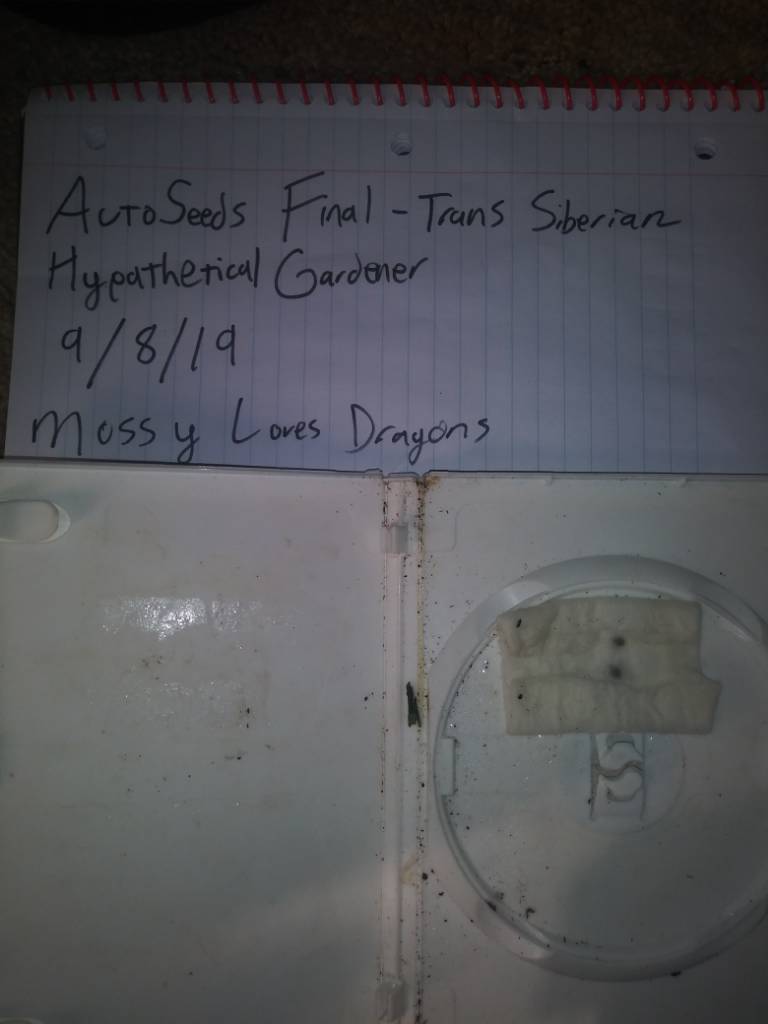 AutoSeeds Final - Trans Siberian
Hypathetical Gardener
9/8/19
Mossy Loves Dragons